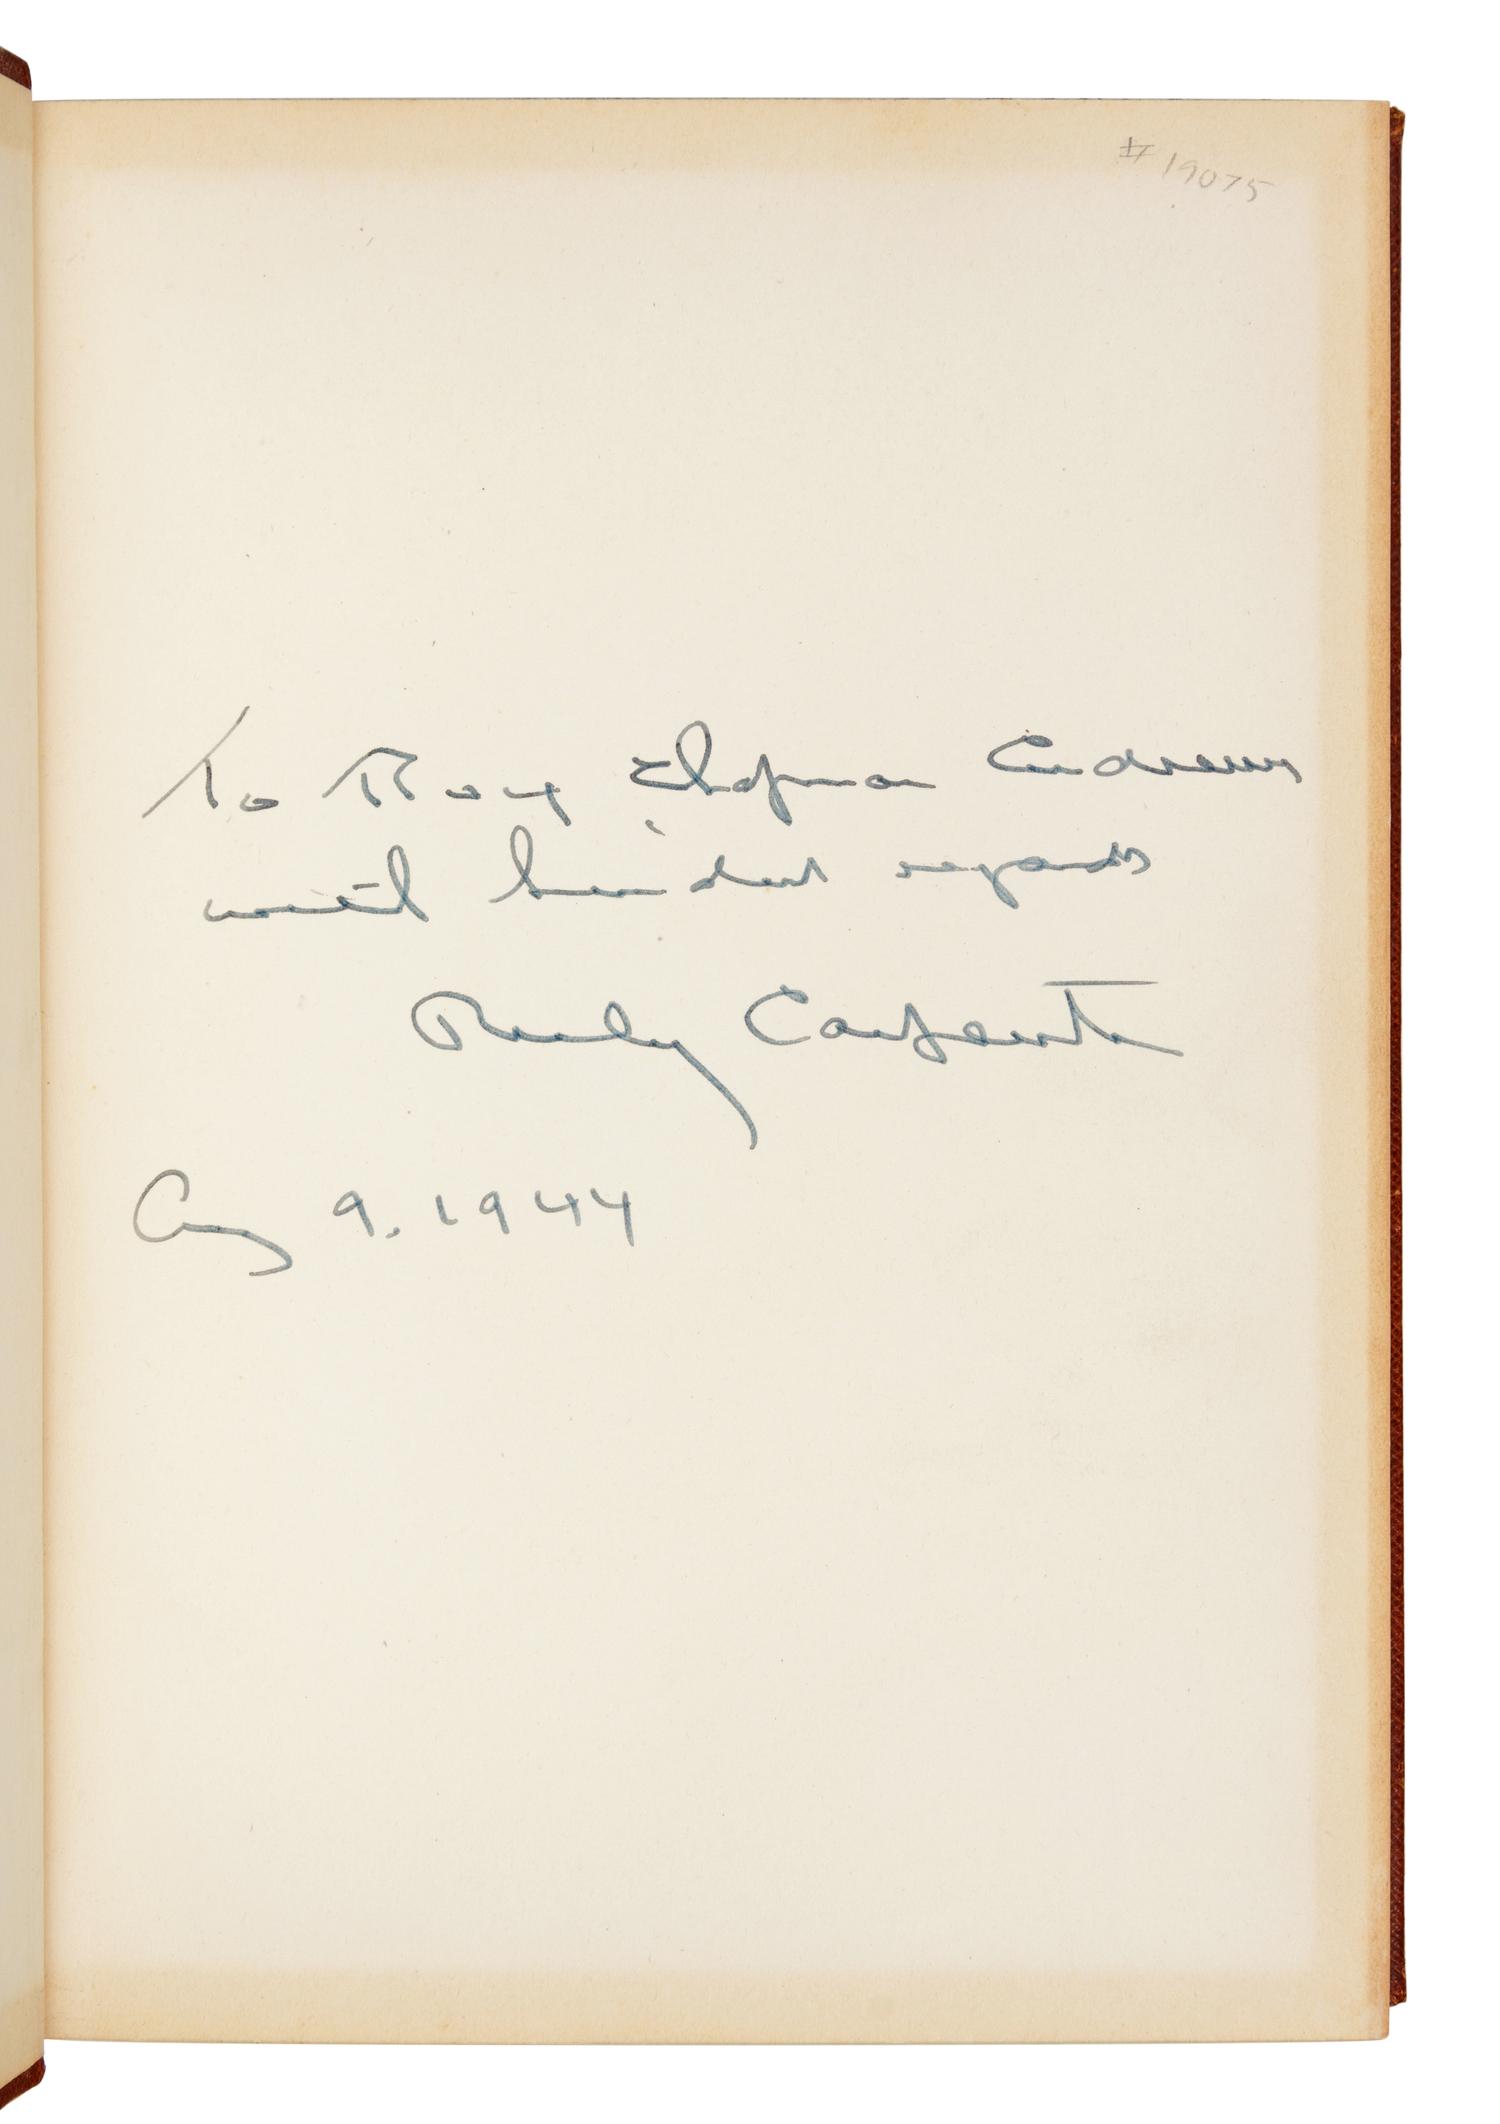 # 19075
To Roy Chapman Andrews
with kindest regards
Ruly Carpenter
Aug 9. 1944